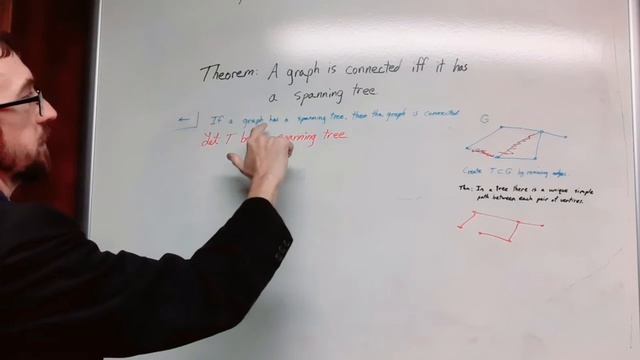 Theorem: A graph is connected iff it has
a spanning tree
← If a graph has a spanning tree, then the graph is connected
Let T be spanning tree
G
Create T ⊂ G by removing edges.
Thm: In a tree there is a unique simple
path between each pair of vertices.